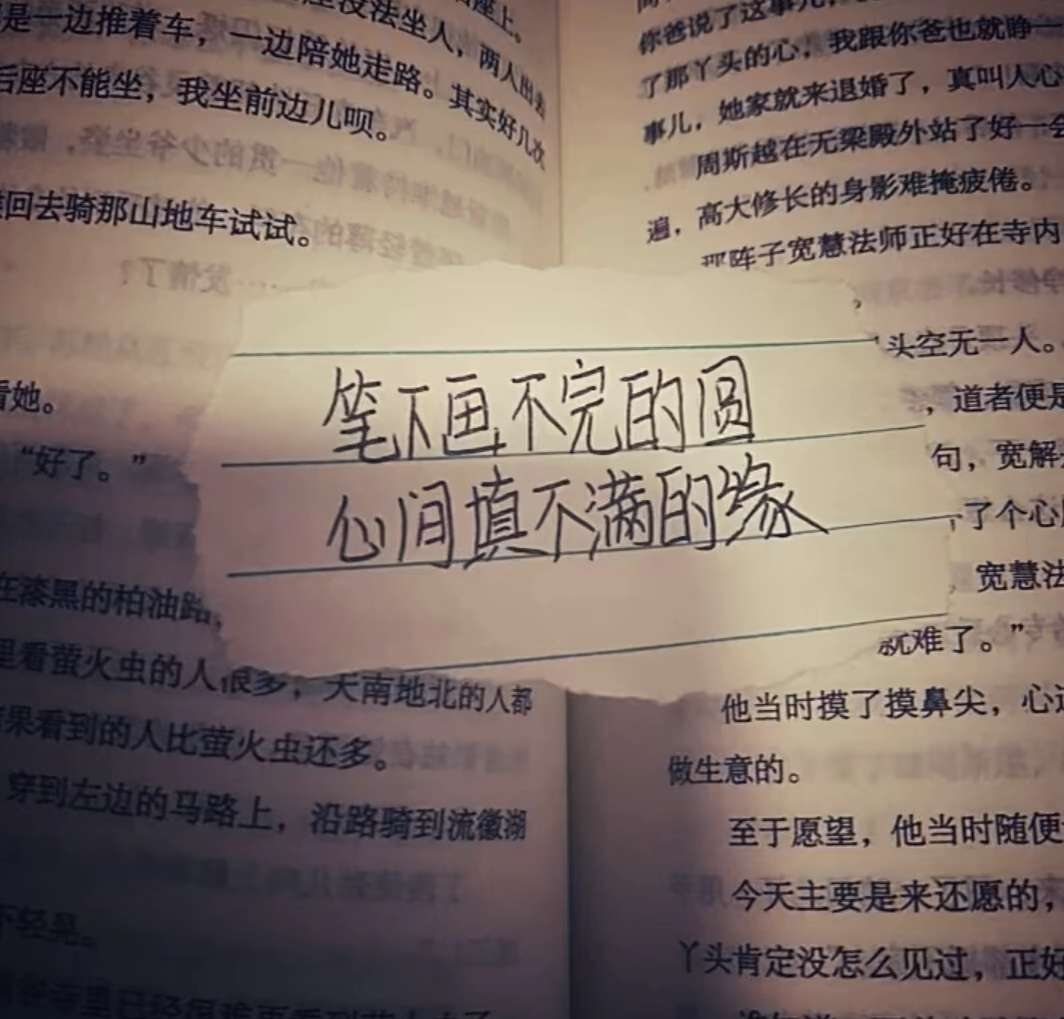 座没法坐人，两人出去
是一边推着车，一边陪她走路。其实好几次
后座不能坐，我坐前边儿呗。
回去骑那山地车试试。
看她。
“好了。”
在漆黑的柏油路，
里看萤火虫的人很多，天南地北的人都
结果看到的人比萤火虫还多。
穿到左边的马路上，沿路骑到流徽湖
不轻是。
笔下画不完的圆
心间填不满的缘
你爸说了这事儿，
了那丫头的心，我跟你爸也就睁一
事儿，她家就来退婚了，真叫人心
周斯越在无梁殿外站了好一会
遍，高大修长的身影难掩疲倦。
那阵子宽慧法师正好在寺内
头空无一人。
，道者便是
句，宽解
了个心
，宽慧法
就难了。”
他当时摸了摸鼻尖，心过
做生意的。
至于愿望，他当时随便
今天主要是来还愿的，
丫头肯定没怎么见过，正好